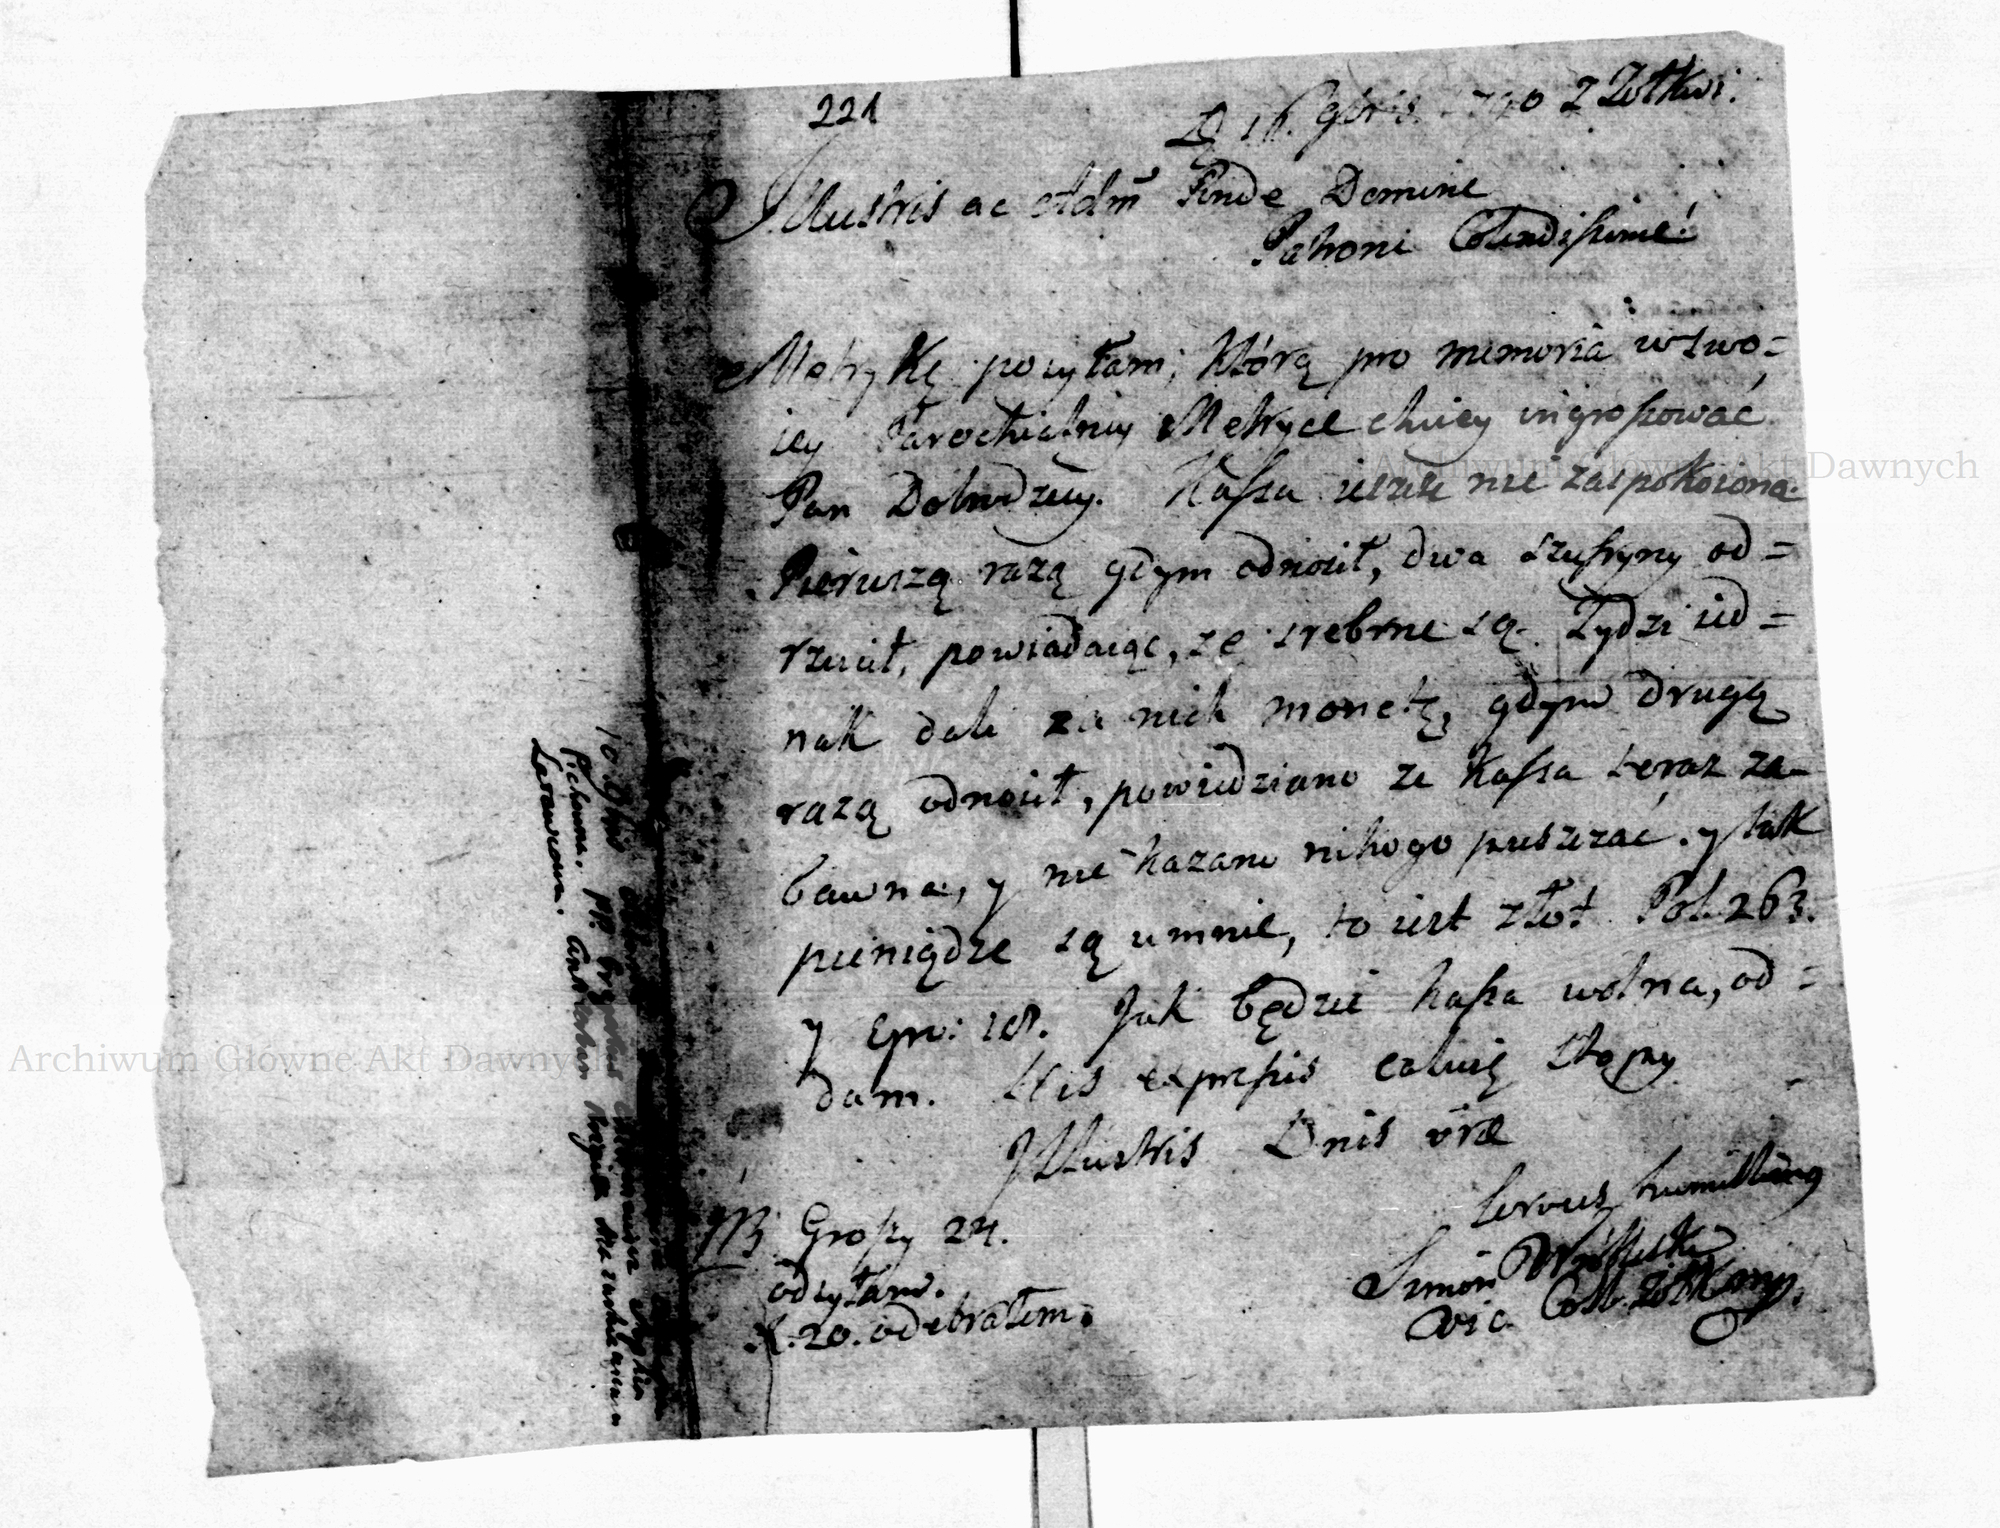 221
D 16. 9bris. 1790 z Żołkwi.
Illustris ac Adm Rnde Domine
Patrone Colendissime!
Metrykę posyłam, którą pro memoria w swo=
iey Parochialney Metryce chciey ingrossować
Pan Dobrodziey. Kassa ieszcze nie zaspokoiona.
Pierwszą razą gdym odnosił, dwa szustyny od=
rzucił, powiadaiąc, że srebrne są. Żydzi ied=
nak dali za nich monetę, gdym drugą
razą odnosił, powiedziano że kassa teraz za=
bawna, y nie kazano nikogo puszczać. y tak
pieniądze są u mnie, to iest złot Pol. 263.
y gr: 18. Jak będzie kassa wolna, od=
dam. His expressis całuię stopy
Illustris Dnis vrae
servus humillimus
Simon
Vic. Coll. Żołk
NB Groszy 24.
odsyłam.
20. odebrałem.
10 9bris
Archiwum Główne Akt Dawnych
Archiwum Główne Akt Dawnych